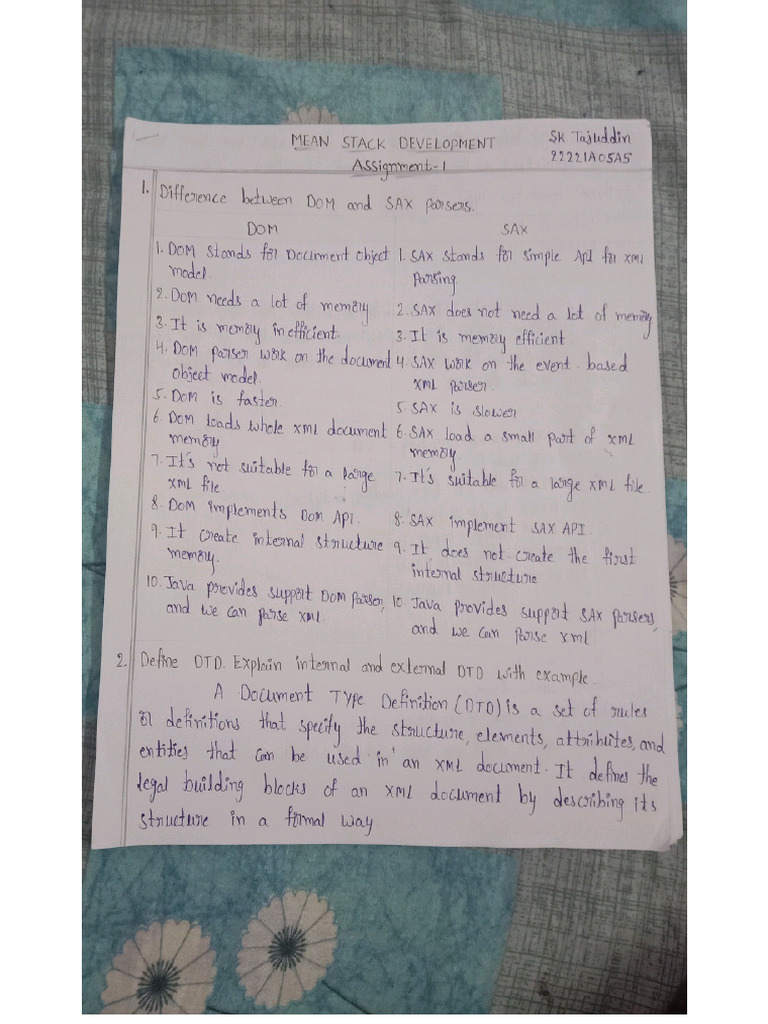 MEAN STACK DEVELOPMENT
SK Tajuddin
22221A05A5
Assignment-1
1. Difference between DOM and SAX parsers.
DOM
1. DOM stands for Document Object
model.
2. DOM needs a lot of memory
3. It is memory inefficient.
4. DOM parser work on the document
object model.
5. DOM is faster.
6. DOM loads whole XML document
memory.
7. It's not suitable for a large
XML file.
8. DOM implements DOM API.
9. It create internal structure
memory.
10. Java provides support DOM Parser,
and we can parse XML.
SAX
1. SAX stands for simple API for XML
Parsing
2. SAX does not need a lot of memory
3. It is memory efficient
4. SAX work on the event based
XML parser.
5. SAX is slower
6. SAX load a small part of XML
memory
7. It's suitable for a large XML file.
8. SAX implement SAX API.
9. It does not create the first
internal structure
10. Java provides support SAX Parsers,
and we can parse XML
2. Define DTD. Explain internal and external DTD with example.
A Document Type Definition (DTD) is a set of rules
or definitions that specify the structure, elements, attributes, and
entities that can be used in an XML document. It defines the
legal building blocks of an XML document by describing its
structure in a formal way